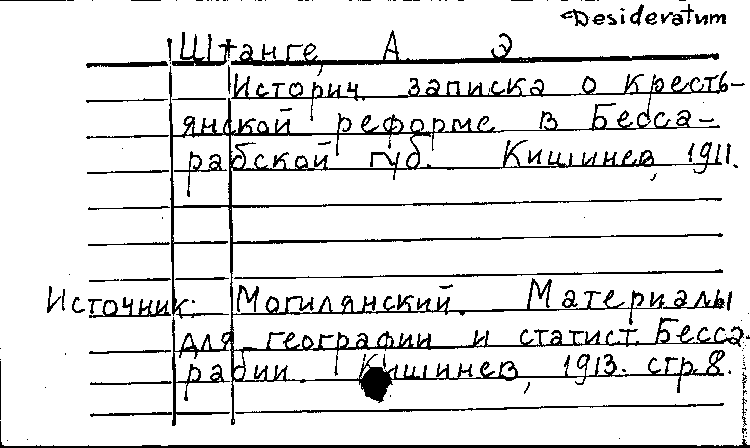 Desideratum
Штанге, А. Э
Историч. записка о кресть-
янской реформе в Бесса-
рабской губ. Кишинев, 1911.
Источник: Могилянский. Материалы
для географии и статист. Бесса-
рабии. Кишинев, 1913. стр. 8.